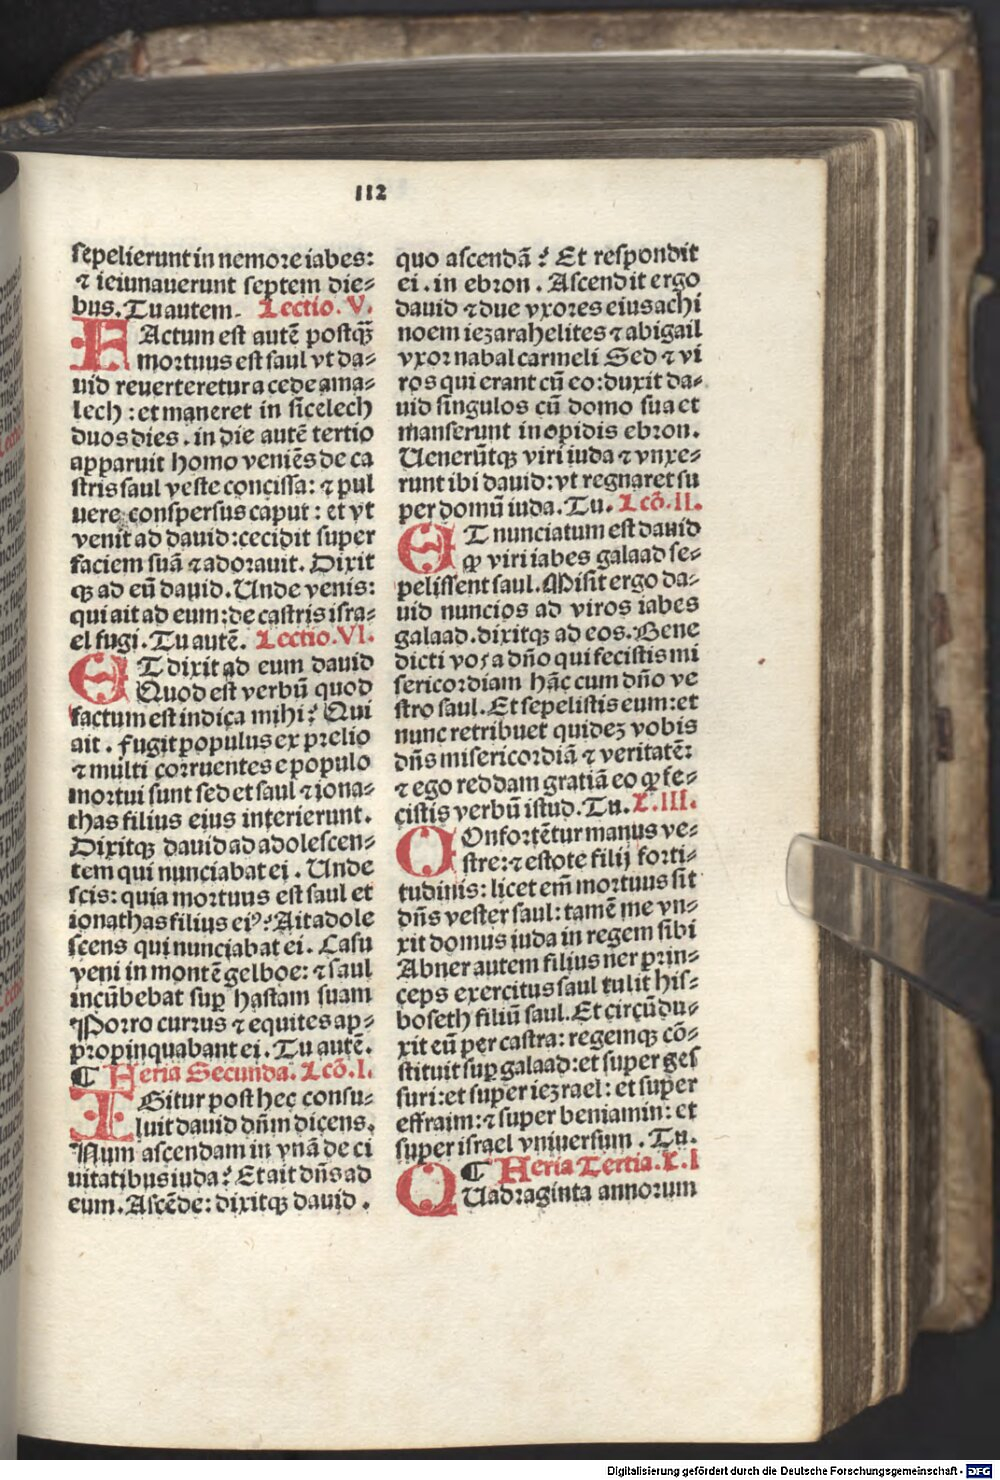 112
sepelierunt in nemore iabes:
⁊ ieiunauerunt septem die⸗
bus. Tu autem. Lectio. V.
FActum est autē postqȝ̄
mortuus est saul vt da⸗
uid reuerteretur a cede ama⸗
lech : et maneret in sicelech
duos dies . in die autē tertio
apparuit homo veniēs de ca
stris saul veste concissa: ⁊ pul
uere conspersus caput : et vt
venit ad dauid: cecidit super
faciem suā ⁊ adorauit. Dixit
qȝ ad eū dauid. Unde venis:
qui ait ad eum: de castris isra⸗
el fugi. Tu autē. Lectio. VI.
ET dixit ad eum dauid
Quod est verbū quod
factum est indica mihi? Qui
ait . fugit populus ex prelio
⁊ multi corruentes e populo
mortui sunt sed et saul ⁊ iona⸗
thas filius eius interierunt.
Dixitqȝ dauid ad adolescen⸗
tem qui nunciabat ei . Unde
scis: quia mortuus est saul et
ionathas filius eiꝰ? Ait adole
scens qui nunciabat ei. Casu
veni in montē gelboe: ⁊ saul
incūbebat suꝑ hastam suam
Porro currus ⁊ equites ap⸗
propinquabant ei. Tu autē.
¶ Feria Secunda. Lcō. I.
IGitur post hec consu⸗
luit dauid dn̄m dicens.
Num ascendam in vnā de ci
uitatibus iuda? Et ait dn̄s ad
eum. Ascēde: dixitqȝ dauid .
quo ascendā ? Et respondit
ei . in ebron . Ascendit ergo
dauid ⁊ due vxores eius achi
noem iezarahelites ⁊ abigail
vxor nabal carmeli Sed ⁊ vi
ros qui erant cū eo: duxit da⸗
uid singulos cū domo sua et
manserunt in opidis ebron.
Uenerūtqȝ viri iuda ⁊ vnxe⸗
runt ibi dauid: vt regnaret su
per domū iuda. Tu. Lcō. II.
ET nunciatum est dauid
ꝙ viri iabes galaad se⸗
pelissent saul. Misit ergo da⸗
uid nuncios ad viros iabes
galaad. dixitqȝ ad eos. Bene
dicti vos a dn̄o qui fecistis mi
sericordiam hāc cum dn̄o ve
stro saul. Et sepelistis eum: et
nunc retribuet quideȝ vobis
dn̄s misericordiā ⁊ veritatē:
⁊ ego reddam gratiā eo ꝙ fe⸗
cistis verbū istud. Tu. L. III.
COnfortētur manus ve⸗
stre: ⁊ estote filij forti⸗
tudinis: licet em̄ mortuus sit
dn̄s vester saul: tamē me vn⸗
xit domus iuda in regem sibi
Abner autem filius ner prin⸗
ceps exercitus saul tulit his⸗
boseth filiū saul. Et circūdu⸗
xit eū per castra: regemqȝ cō⸗
stituit suꝑ galaad: et super ges
suri: et super iezrael: et super
effraim: ⁊ super beniamin: et
super israel vniuersum . Tu.
¶ Feria Tertia. L. I
QUadraginta annorum
Digitalisierung gefördert durch die Deutsche Forschungsgemeinschaft - DFG